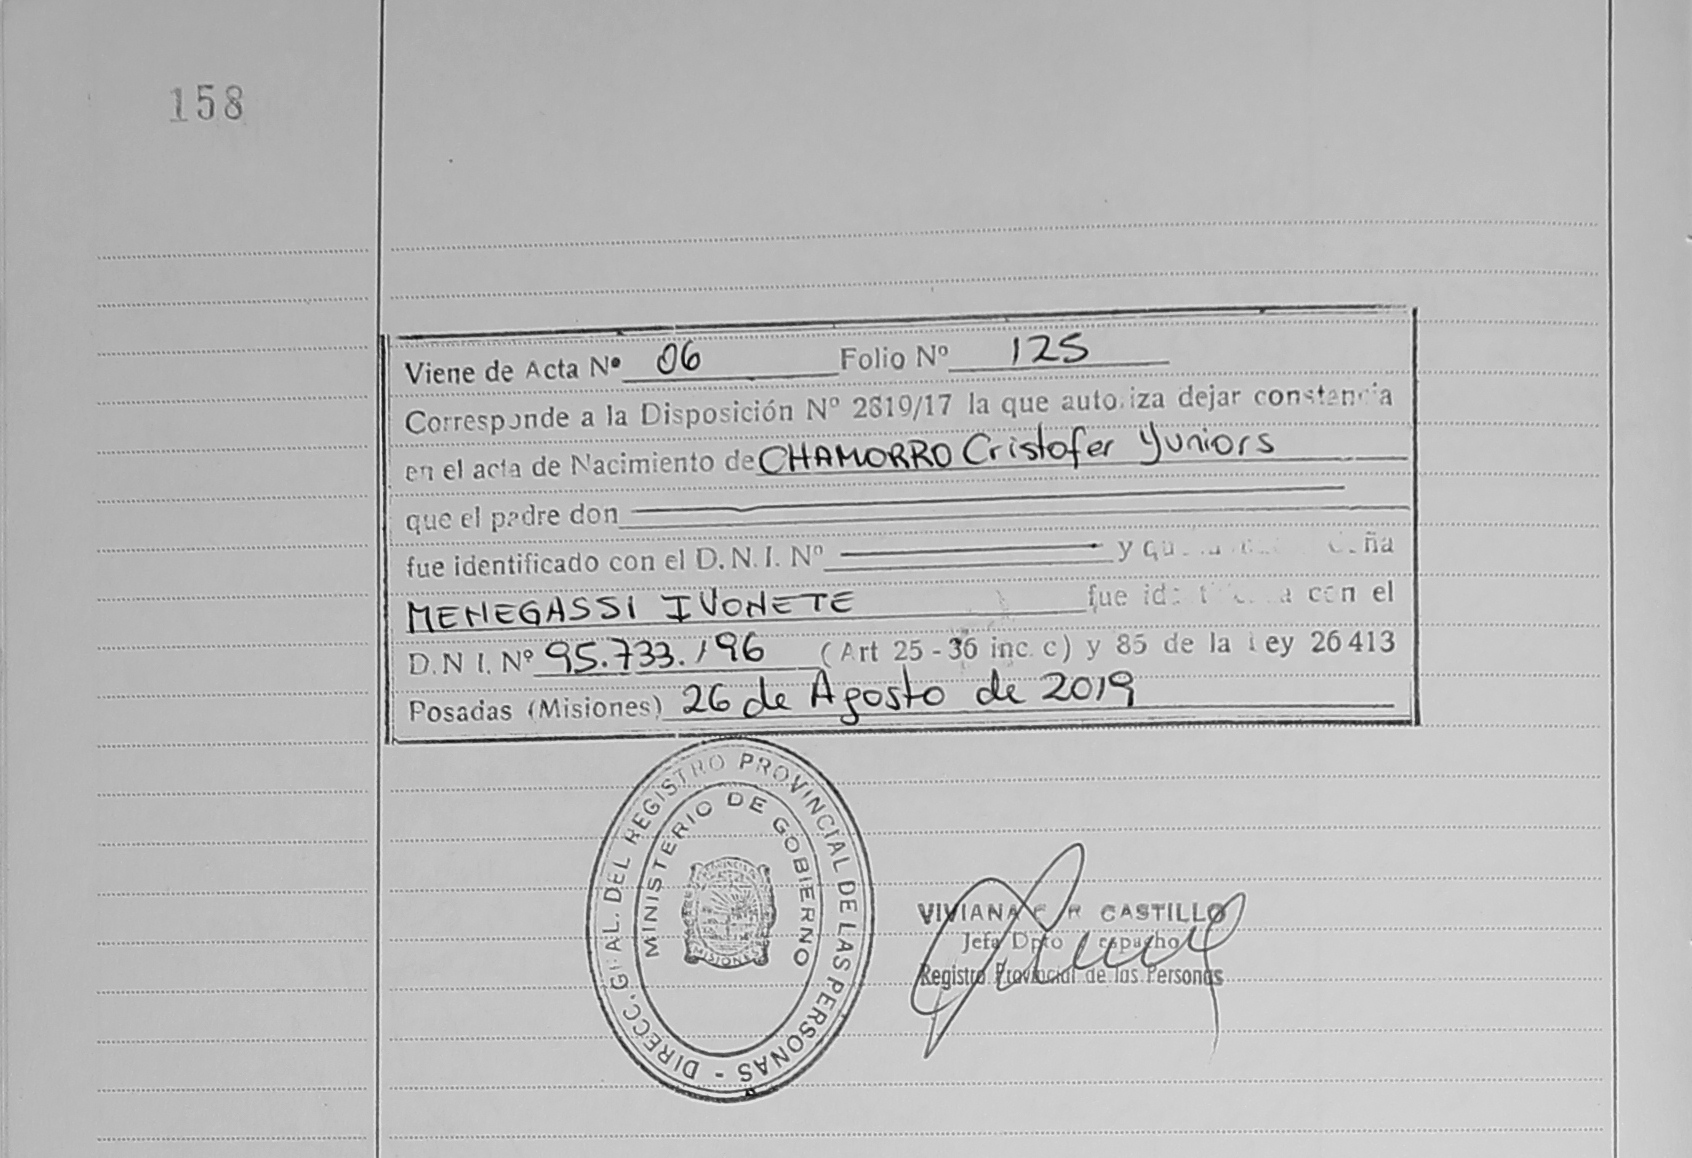 158
Viene de Acta Nº 06 Folio Nº 125
Corresponde a la Disposición Nº 2819/17 la que autoriza dejar constancia
en el acta de Nacimiento de CHAMORRO Cristofer Yuniors
que el padre don
fue identificado con el D.N.I. Nº y ña
MENEGASSI IVONETE fue con el
D.N.I. Nº 95.733.196 (Art 25 - 36 inc. c) y 85 de la Ley 26413
Posadas (Misiones) 26 de Agosto de 2019
DIRECC. GRAL. DEL REGISTRO PROVINCIAL DE LAS PERSONAS -
MINISTERIO DE GOBIERNO
MISIONES
VIVIANA CASTILLO
Jefa Dpto
Registro Provincial de las Personas